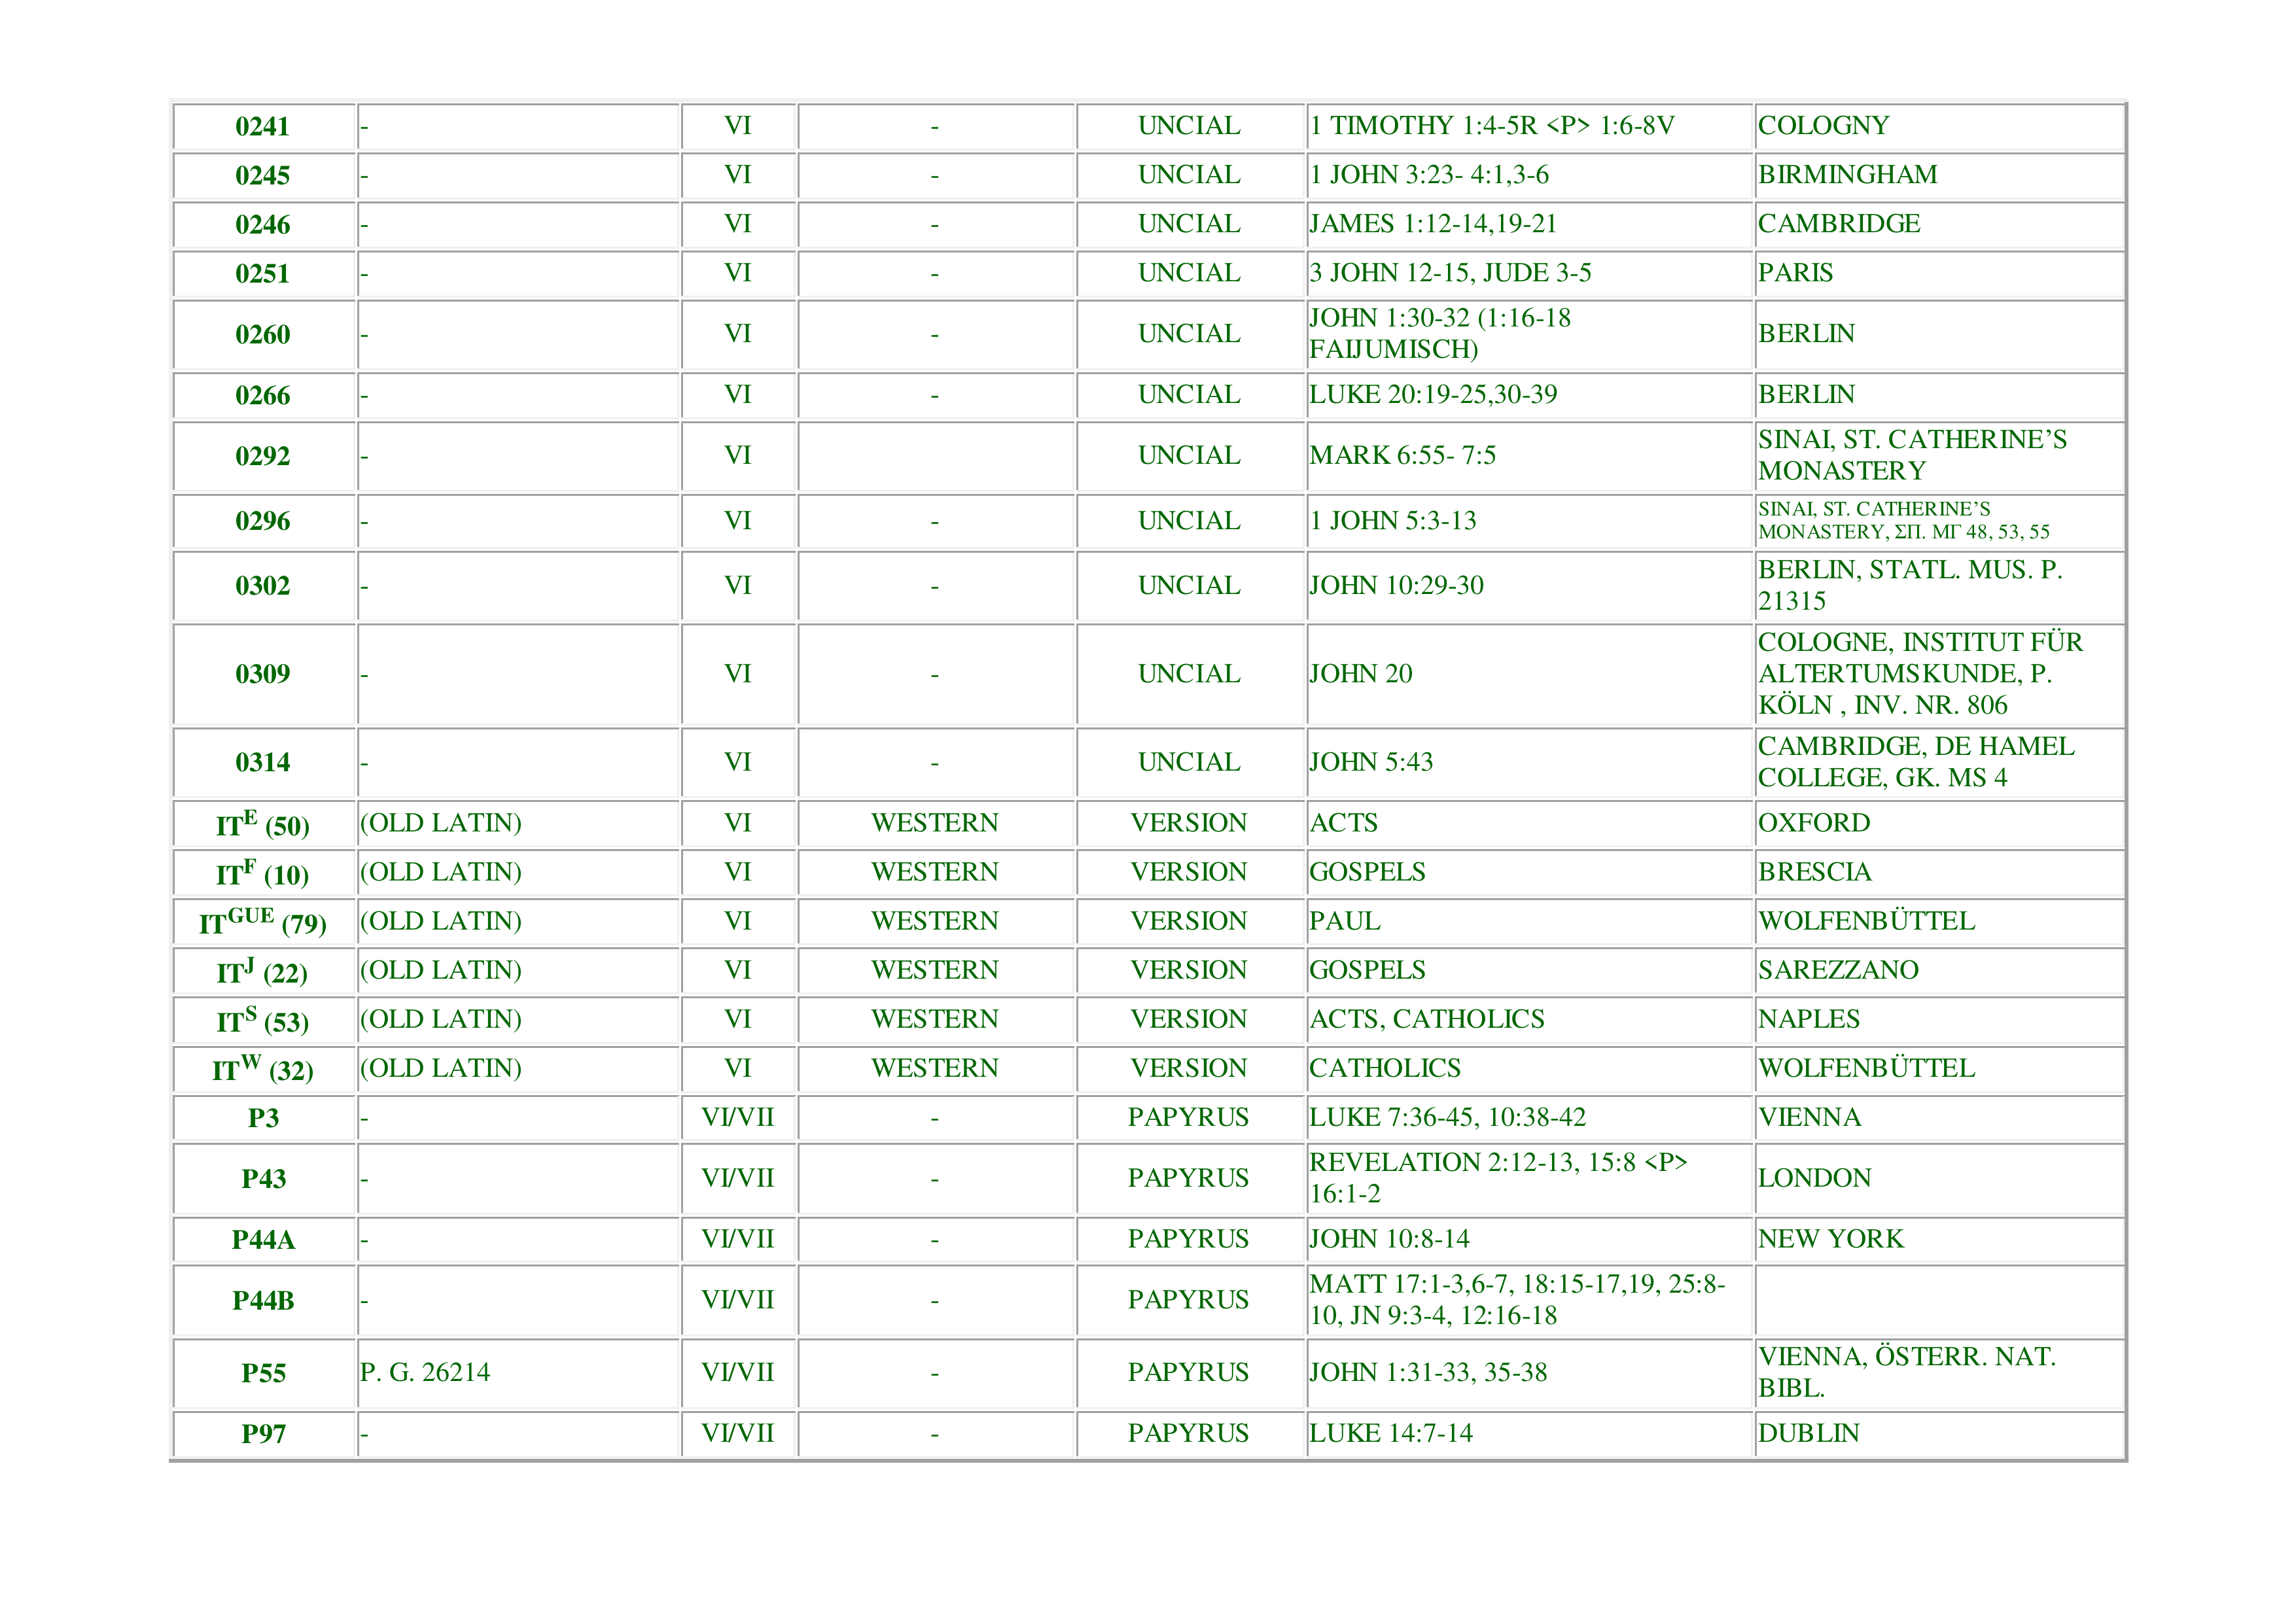 0241 - VI - UNCIAL 1 TIMOTHY 1:4-5R <P> 1:6-8V COLOGNY
0245 - VI - UNCIAL 1 JOHN 3:23- 4:1,3-6 BIRMINGHAM
0246 - VI - UNCIAL JAMES 1:12-14,19-21 CAMBRIDGE
0251 - VI - UNCIAL 3 JOHN 12-15, JUDE 3-5 PARIS
0260 - VI - UNCIAL JOHN 1:30-32 (1:16-18
FAIJUMISCH) BERLIN
0266 - VI - UNCIAL LUKE 20:19-25,30-39 BERLIN
0292 - VI UNCIAL MARK 6:55- 7:5 SINAI, ST. CATHERINE’S
MONASTERY
0296 - VI - UNCIAL 1 JOHN 5:3-13 SINAI, ST. CATHERINE’S
MONASTERY, ΣΠ. ΜΓ 48, 53, 55
0302 - VI - UNCIAL JOHN 10:29-30 BERLIN, STATL. MUS. P.
21315
0309 - VI - UNCIAL JOHN 20 COLOGNE, INSTITUT FÜR
ALTERTUMSKUNDE, P.
KÖLN , INV. NR. 806
0314 - VI - UNCIAL JOHN 5:43 CAMBRIDGE, DE HAMEL
COLLEGE, GK. MS 4
IT^E (50) (OLD LATIN) VI WESTERN VERSION ACTS OXFORD
IT^F (10) (OLD LATIN) VI WESTERN VERSION GOSPELS BRESCIA
IT^GUE (79) (OLD LATIN) VI WESTERN VERSION PAUL WOLFENBÜTTEL
IT^J (22) (OLD LATIN) VI WESTERN VERSION GOSPELS SAREZZANO
IT^S (53) (OLD LATIN) VI WESTERN VERSION ACTS, CATHOLICS NAPLES
IT^W (32) (OLD LATIN) VI WESTERN VERSION CATHOLICS WOLFENBÜTTEL
P3 - VI/VII - PAPYRUS LUKE 7:36-45, 10:38-42 VIENNA
P43 - VI/VII - PAPYRUS REVELATION 2:12-13, 15:8 <P>
16:1-2 LONDON
P44A - VI/VII - PAPYRUS JOHN 10:8-14 NEW YORK
P44B - VI/VII - PAPYRUS MATT 17:1-3,6-7, 18:15-17,19, 25:8-
10, JN 9:3-4, 12:16-18
P55 P. G. 26214 VI/VII - PAPYRUS JOHN 1:31-33, 35-38 VIENNA, ÖSTERR. NAT.
BIBL.
P97 - VI/VII - PAPYRUS LUKE 14:7-14 DUBLIN